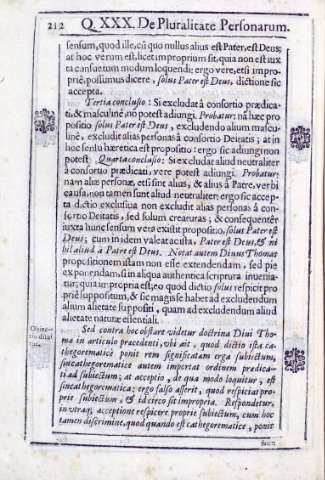 212 Q. XXX. De Pluralitate Personarum.
sensum, quod ille, cū quo nullus alius est Pater, est Deus;
at hoc verum est, licet improprium sit, quia non est iux
ta consuetum modum loquendi; ergo vere, etsi impro-
priè, possumus dicere, solus Pater est Deus, dictione sic
accepta.
Tertia conclusio: Si excludat à consortio prædica-
ti, & masculinè, nō potest adiungi. Probatur: nā hæc pro
positio solus Pater est Deus, excludendo alium mascu-
linè, excludit alias personas à consortio Deitatis; at in
hoc sensu hæretica est propositio: ergo sic adiungi non
potest. Quarta conclusio: Si excludat aliud neutraliter
à consortio prædicati, vere potest adiungi. Probatur:
nam aliæ personæ, etsi sint alius, & alius à Patre, verbi
causa, non tamen sunt aliud neutraliter: ergo sic accep-
ta dictio exclusiua non excludit alias personas à con-
sortio Deitatis, sed solum creaturas; & consequenter
iuxta hunc sensum vera existit propositio, solus Pater est
Deus; cum in idem valeat ac ista, Pater est Deus, & ni
hil aliud à Patre est Deus. Notat autem Diuus Thomas
propositionem istam non esse extendendam, sed pie
exponendam, si in aliqua authentica scriptura inuenia-
tur; quia impropria est, eo quod dictio solus respicit pro
prie suppositum, & sic magis se habet ad excludendum
alium alietate suppositi, quam ad excludendum aliud
alietate naturæ essentiali.
Sed contra hoc obstare videtur doctrina Diui Tho
mæ in articulo præcedenti, vbi ait, quod dictio ista ca-
thegorematicè ponit rem significatam erga subiectum,
sincathegorematicè autem importat ordinem prædica-
ti ad subiectum; at acceptio, de qua modo loquitur, est
sincathegorematica: ergo falso asserit, quod respiciat pro-
prie subiectum, & id circo sit impropria. Respondetur,
in vtraq; acceptione respicere proprie subiectum, cum hoc
tamen discrimine, quod quando est cathegorematicè, ponit